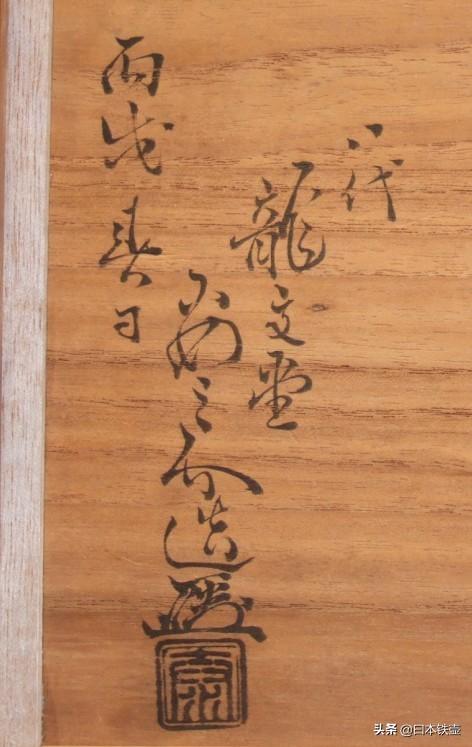 八代
龍文堂
之介造
丙戌春日
头条 @日本铁壶